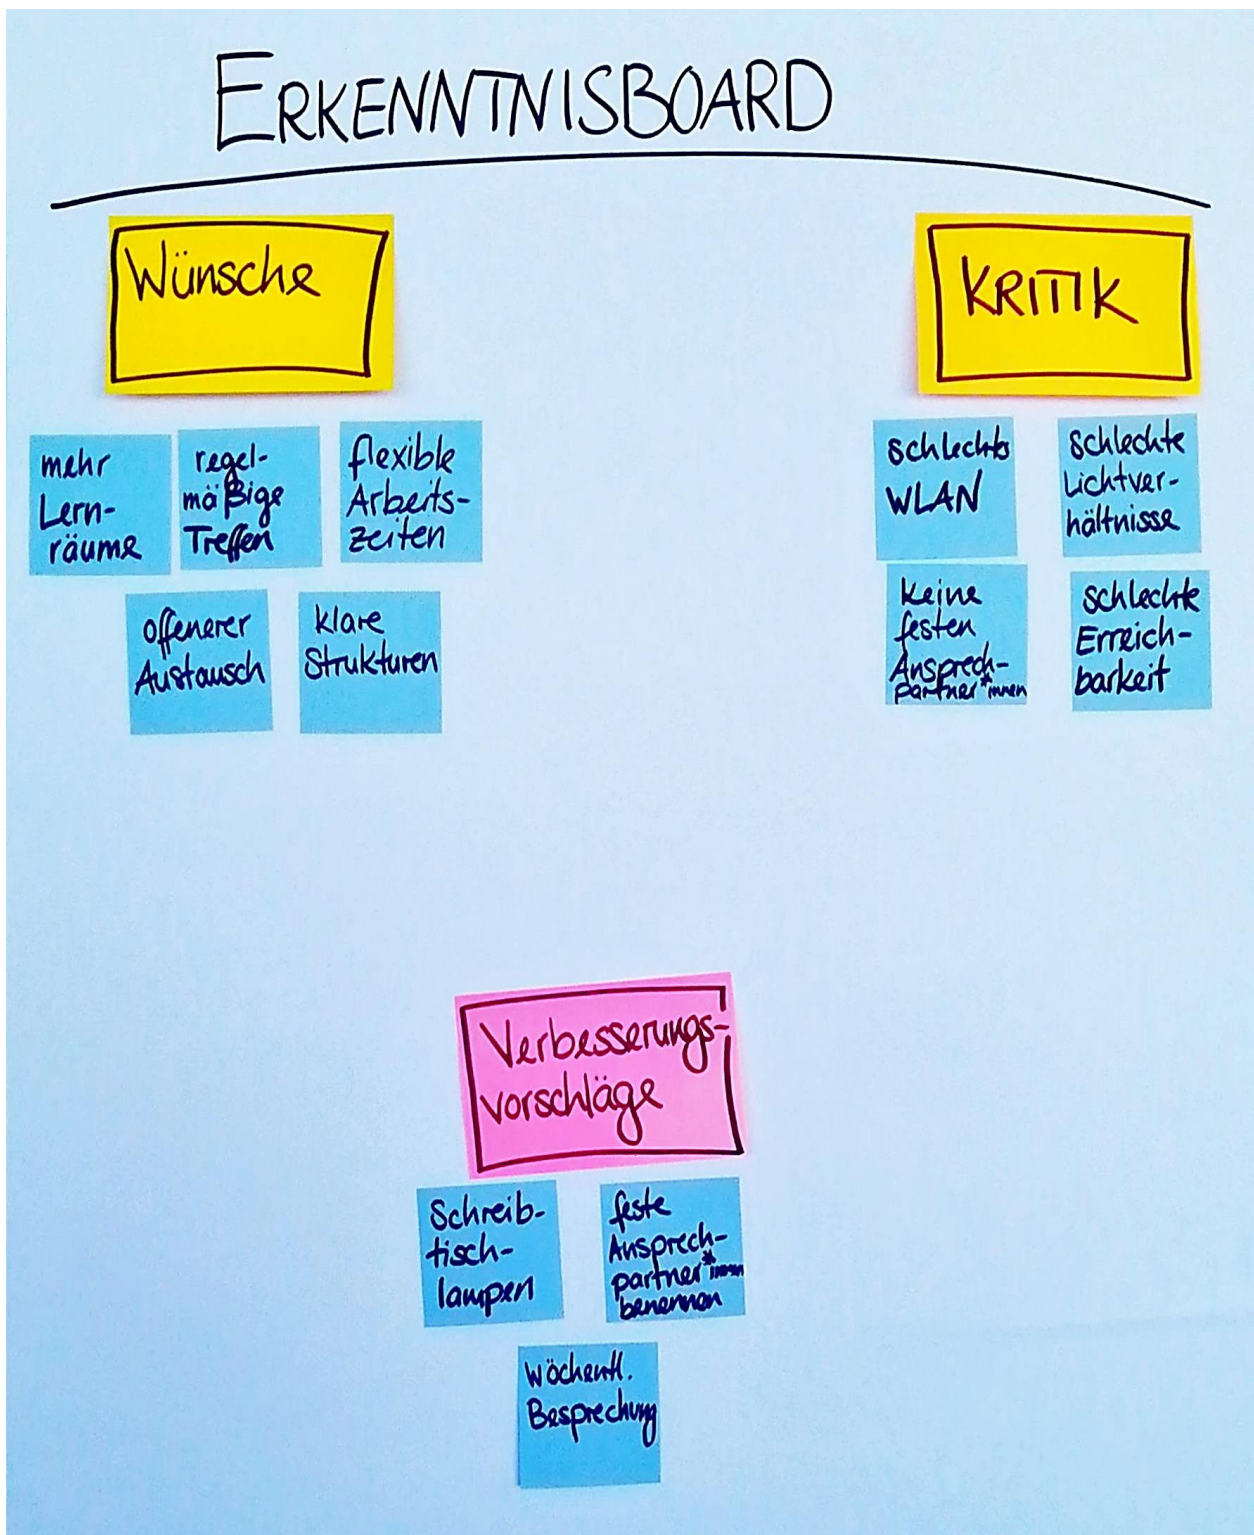 ERKENNTNISBOARD
Wünsche
mehr
Lern-
räume
regel-
mäßige
Treffen
flexible
Arbeits-
zeiten
offenerer
Austausch
klare
Strukturen
KRITIK
schlechtes
WLAN
schlechte
Lichtver-
hältnisse
keine
festen
Ansprech-
partner*innen
schlechte
Erreich-
barkeit
Verbesserungs-
vorschläge
Schreib-
tisch-
lampen
feste
Ansprech-
partner*innen
benennen
wöchentl.
Besprechung